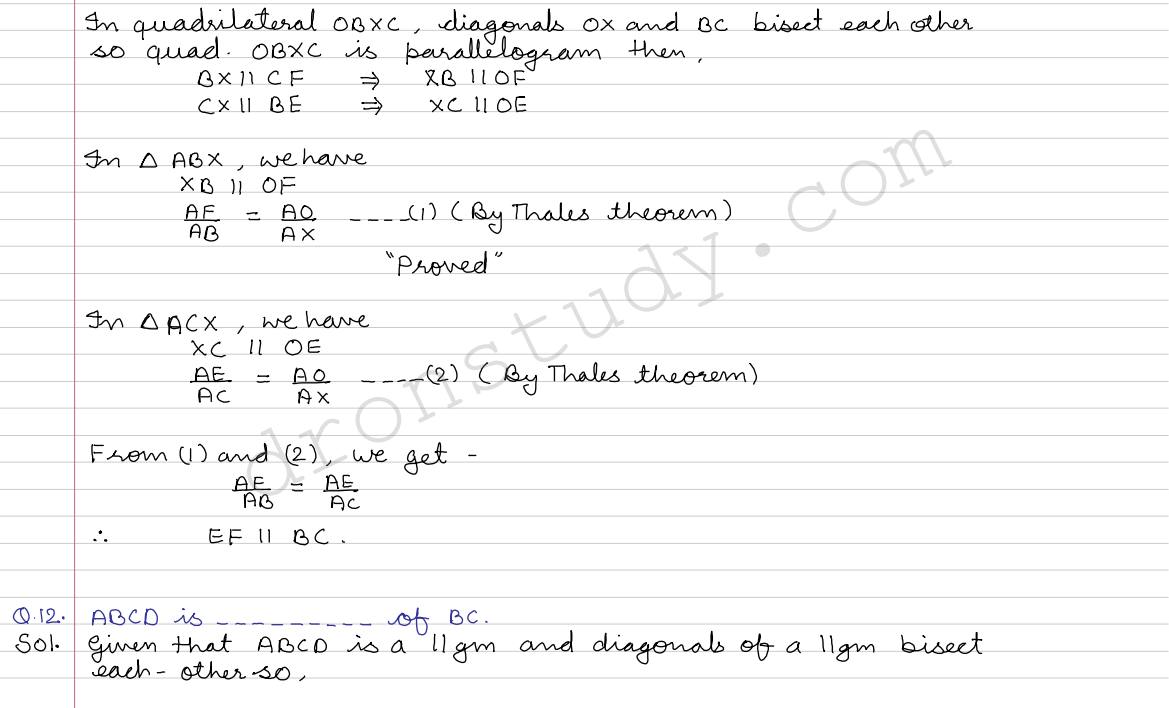 In quadrilateral OBXC, diagonals OX and BC bisect each other
so quad. OBXC is parallelogram then,
BX || CF ⇒ XB || OF
CX || BE ⇒ XC || OE
In △ ABX, we have
XB || OF
AF/AB = AO/AX ----(1) (By Thales theorem)
"Proved"
In △ ACX, we have
XC || OE
AE/AC = AO/AX ----(2) (By Thales theorem)
From (1) and (2), we get -
AF/AB = AE/AC
∴ EF || BC.
Q.12. ABCD is --------- of BC.
Sol. Given that ABCD is a ||gm and diagonals of a ||gm bisect
each-other so,
dronstudy.com